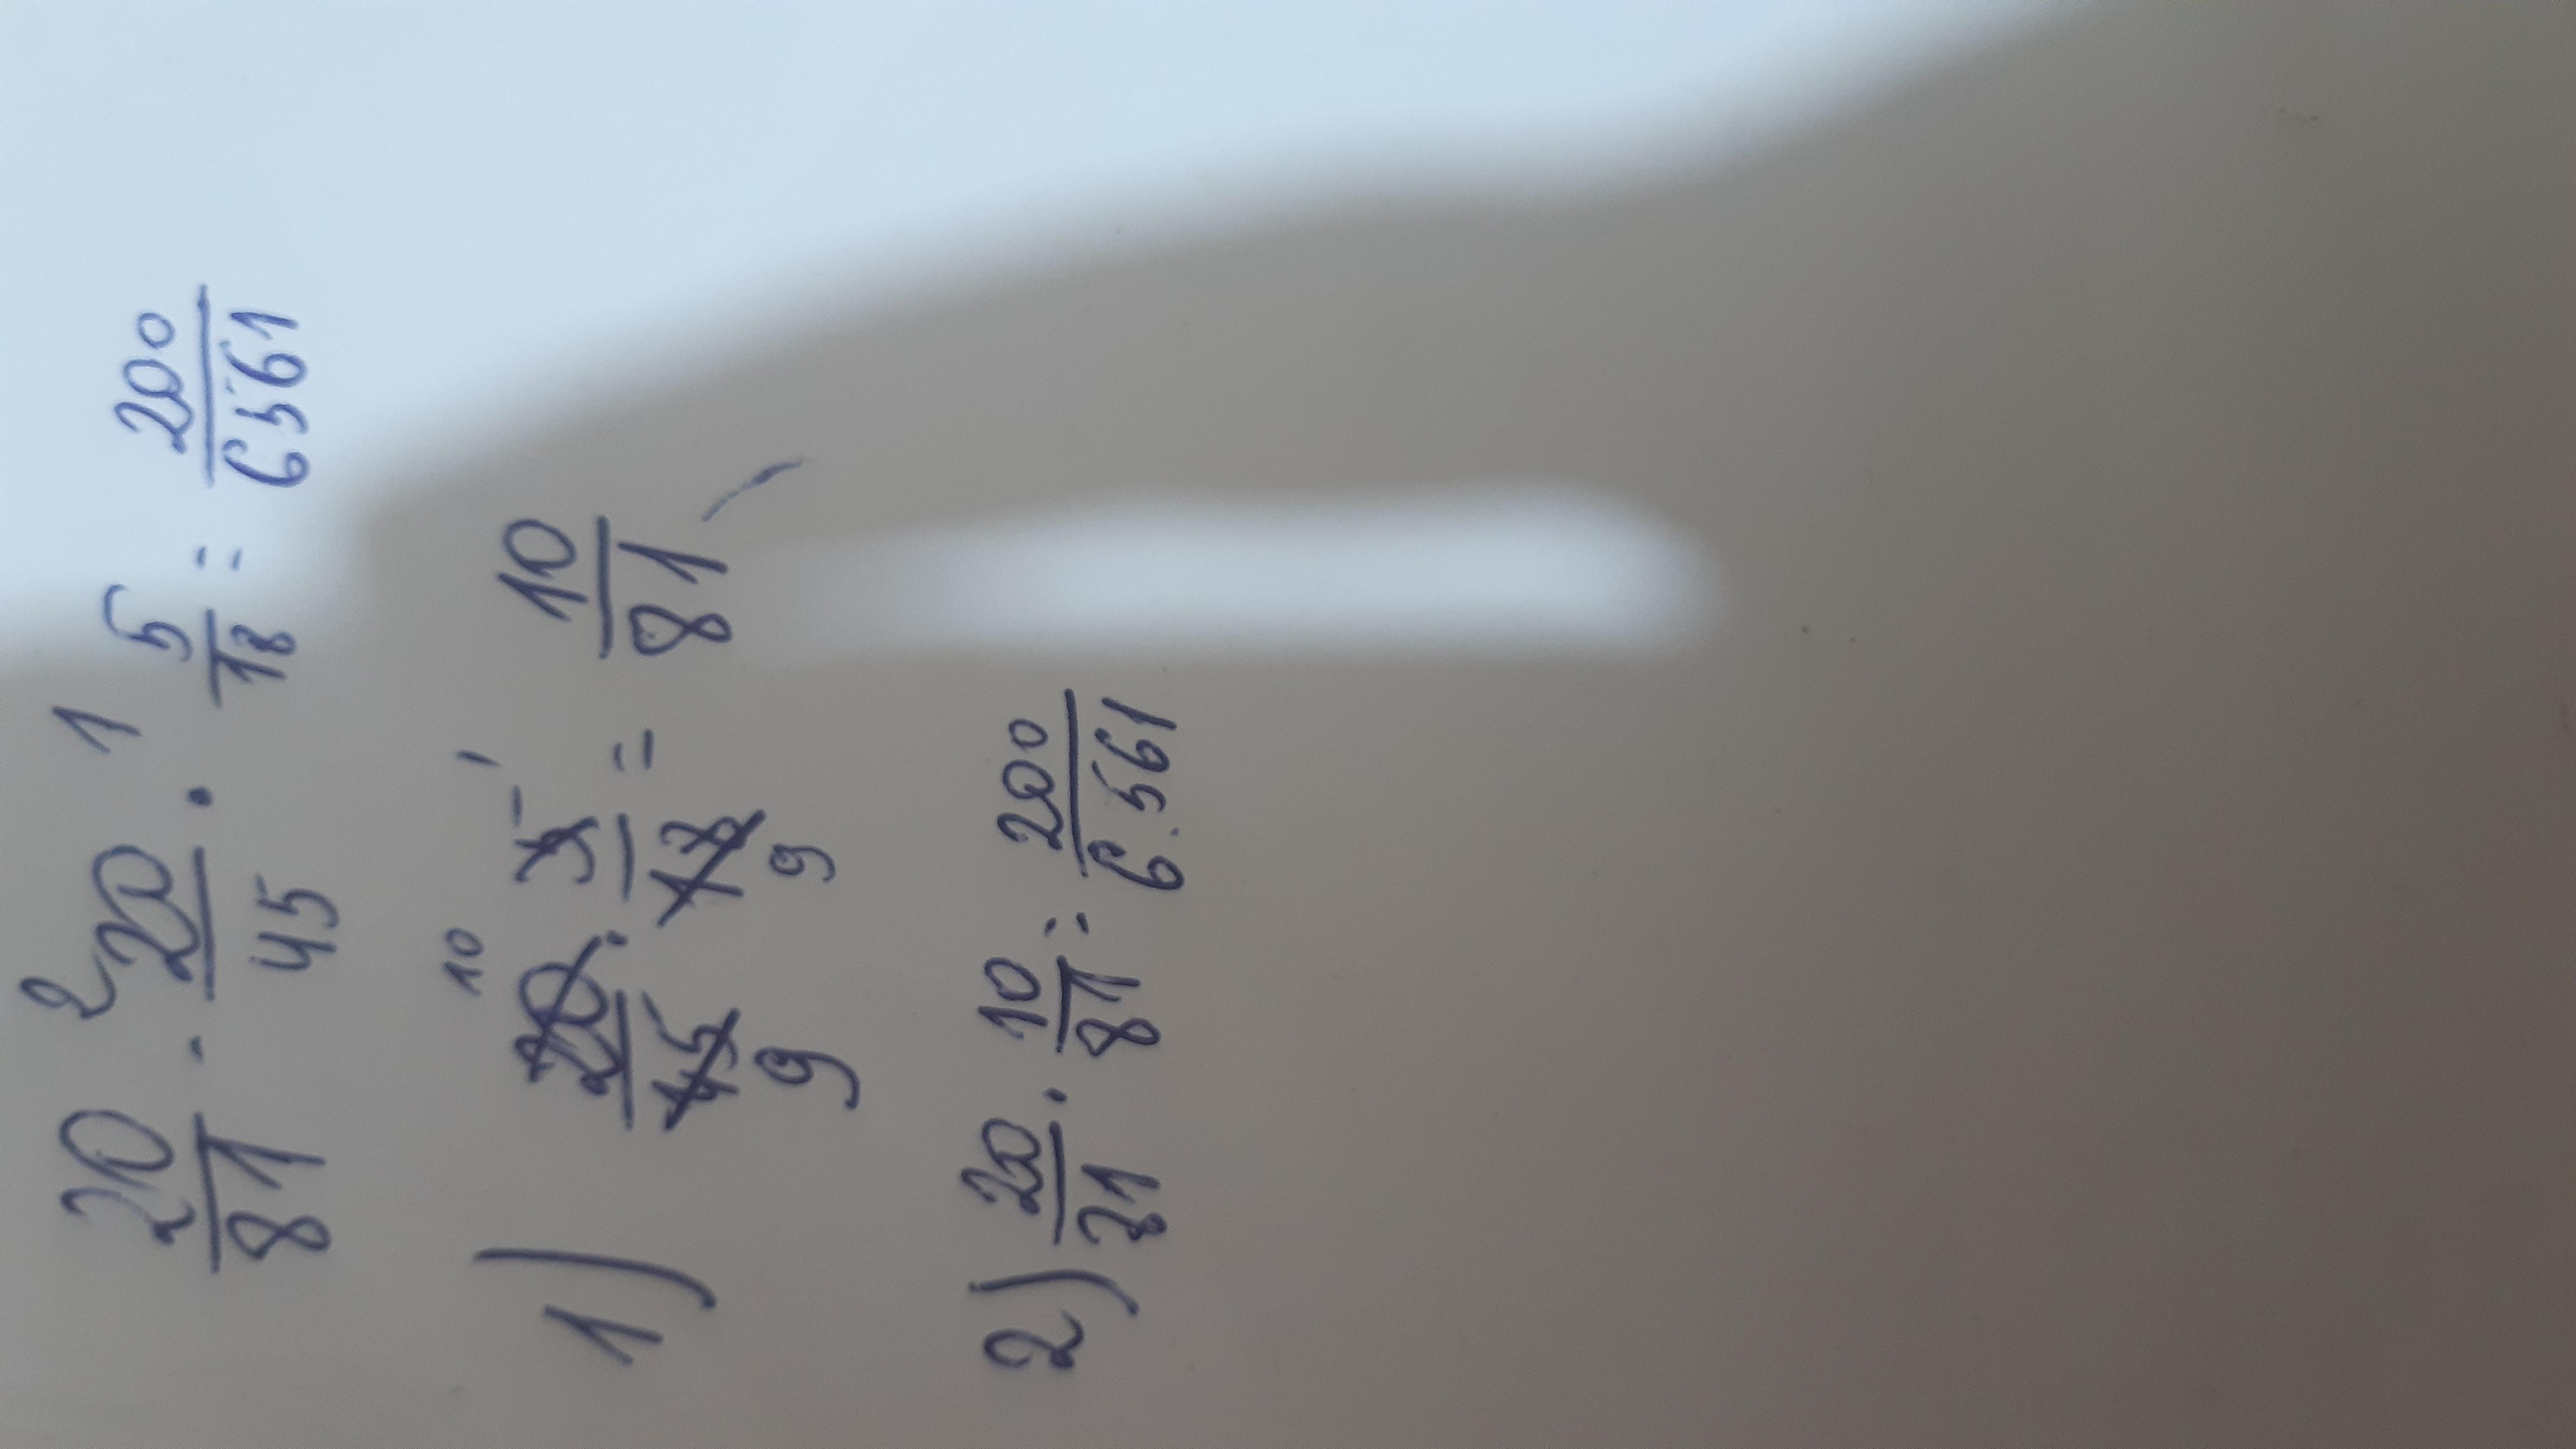 2 1
20/81 · 20/45 · 5/18 = 200/6561
10 1
1) 20/45 · 5/18 = 10/81
9 9
2) 20/81 · 10/81 = 200/6.561